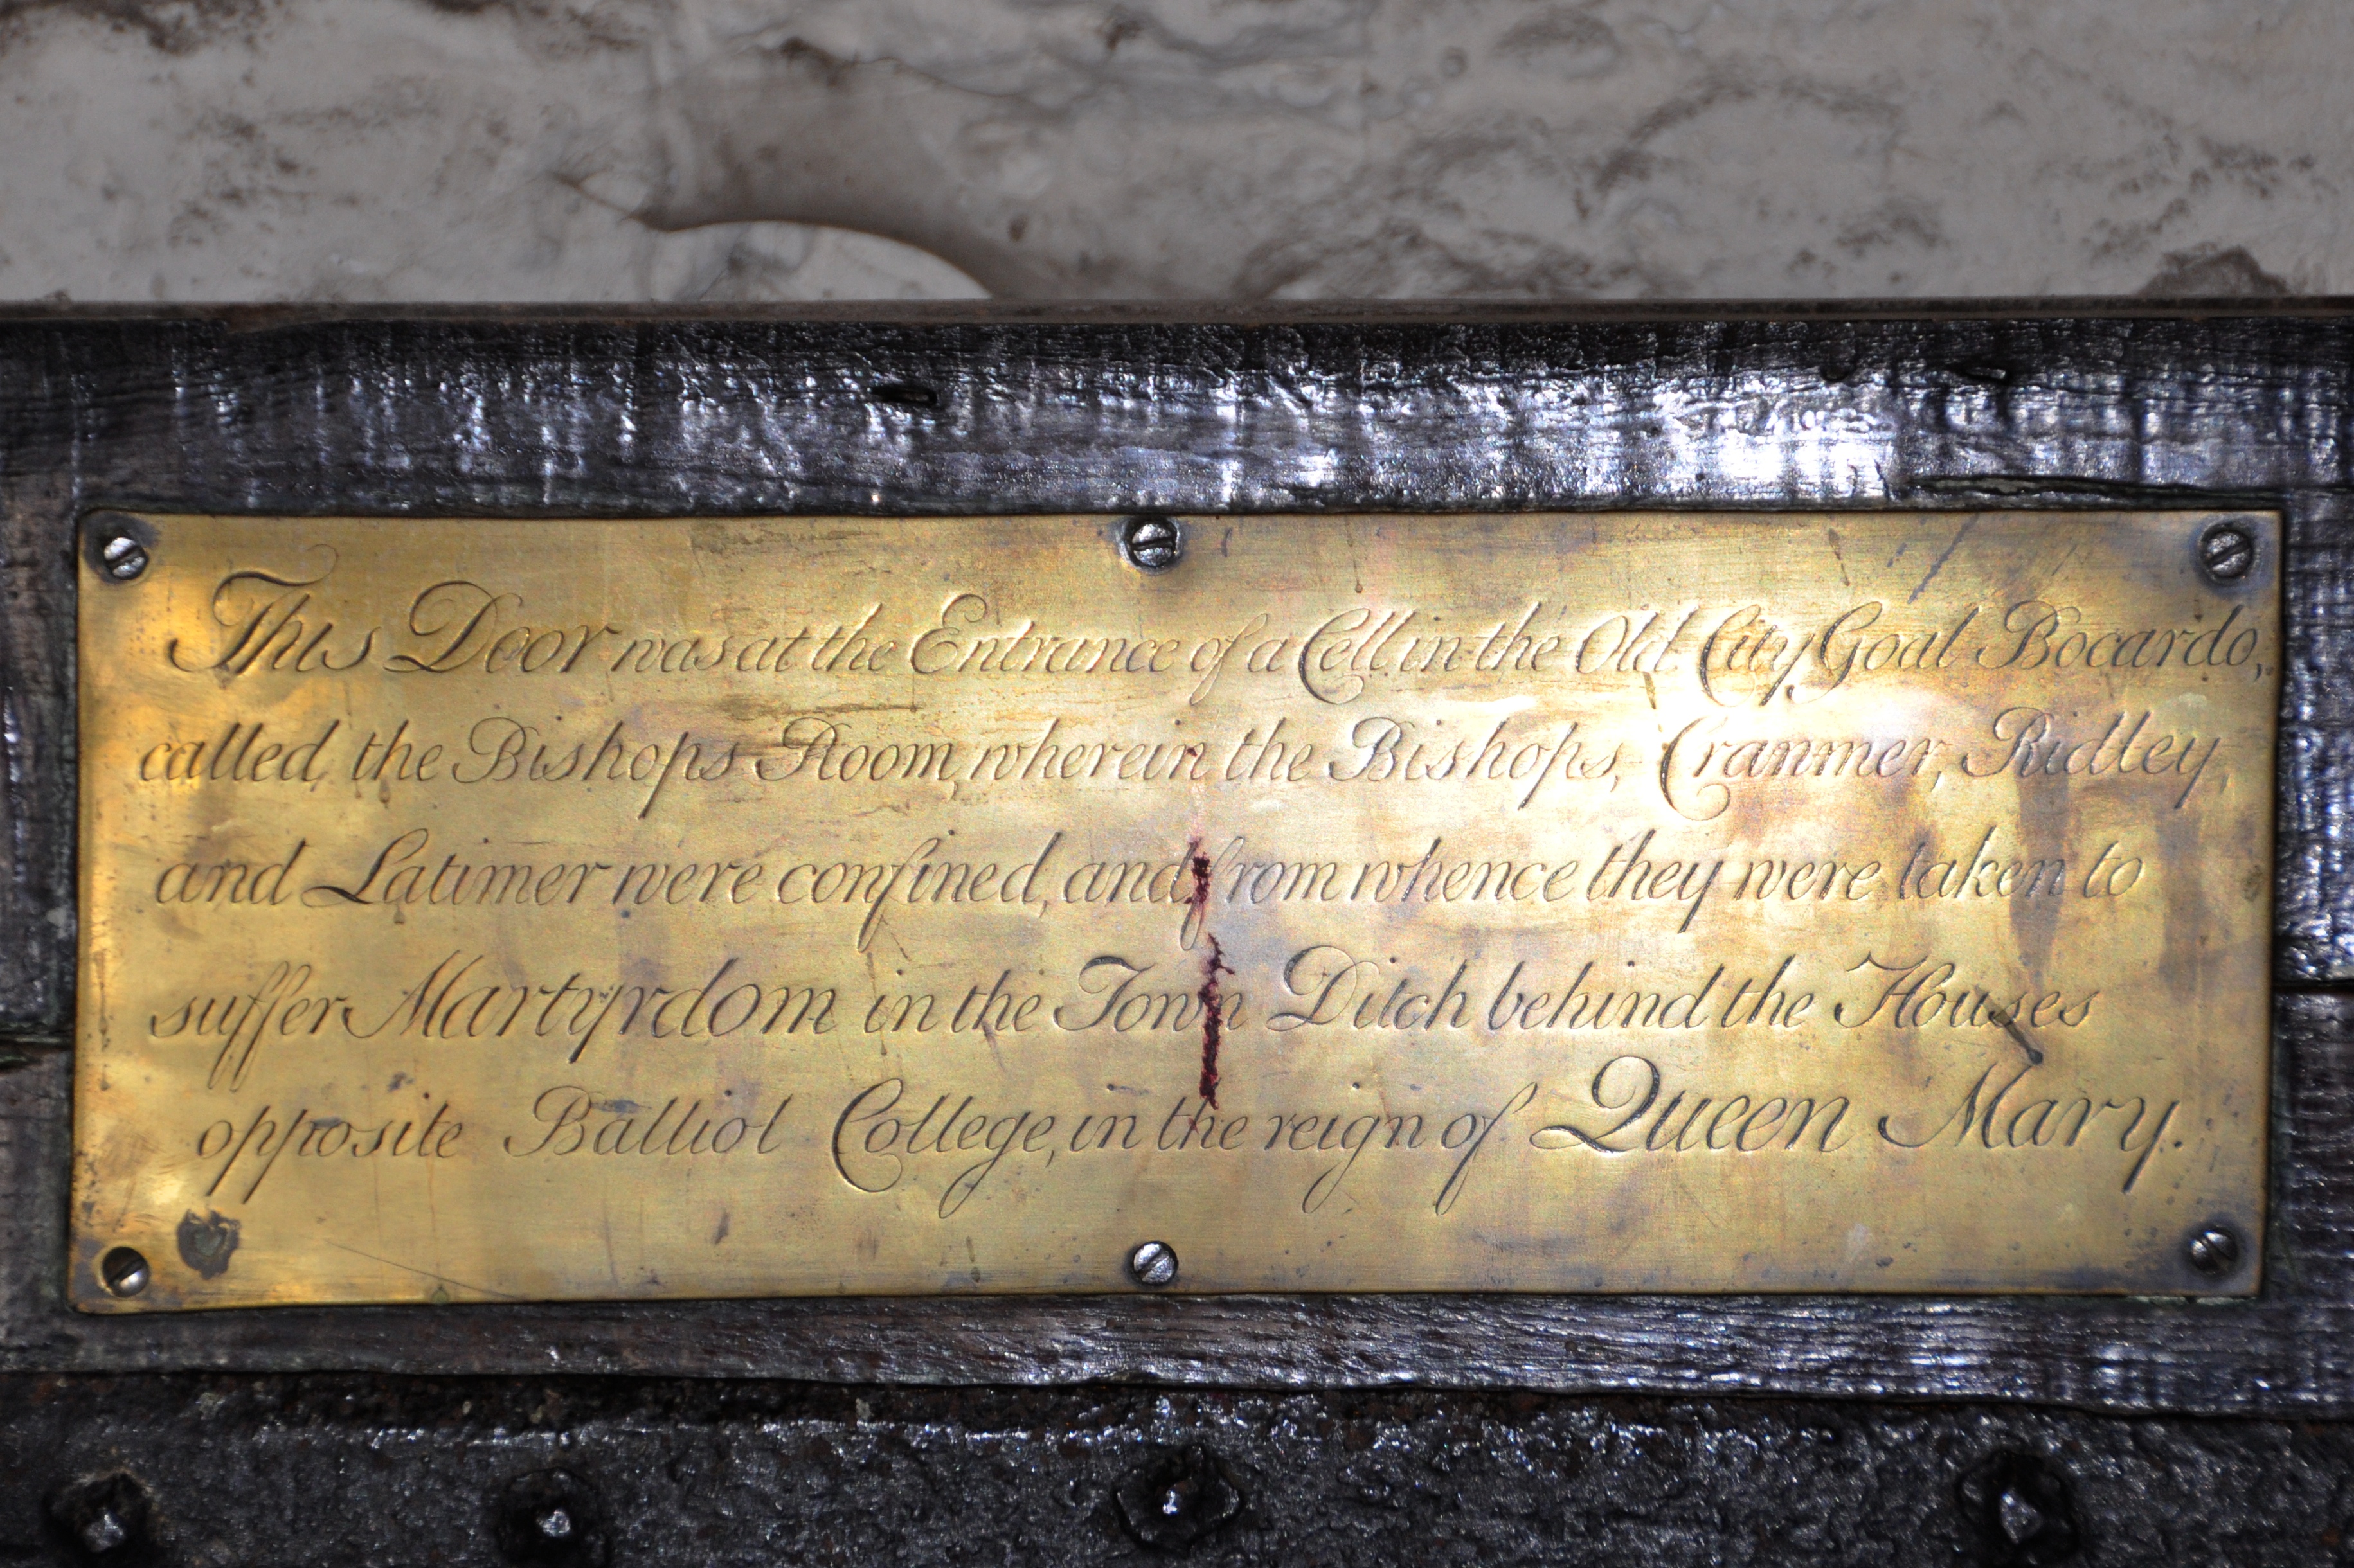 This Door was at the Entrance of a Cell in the Old City Goal Bocardo,
called the Bishops Room, wherein the Bishops, Cranmer, Ridley,
and Latimer were confined, and from whence they were taken to
suffer Martyrdom in the Town Ditch behind the Houses
opposite Balliol College, in the reign of Queen Mary.